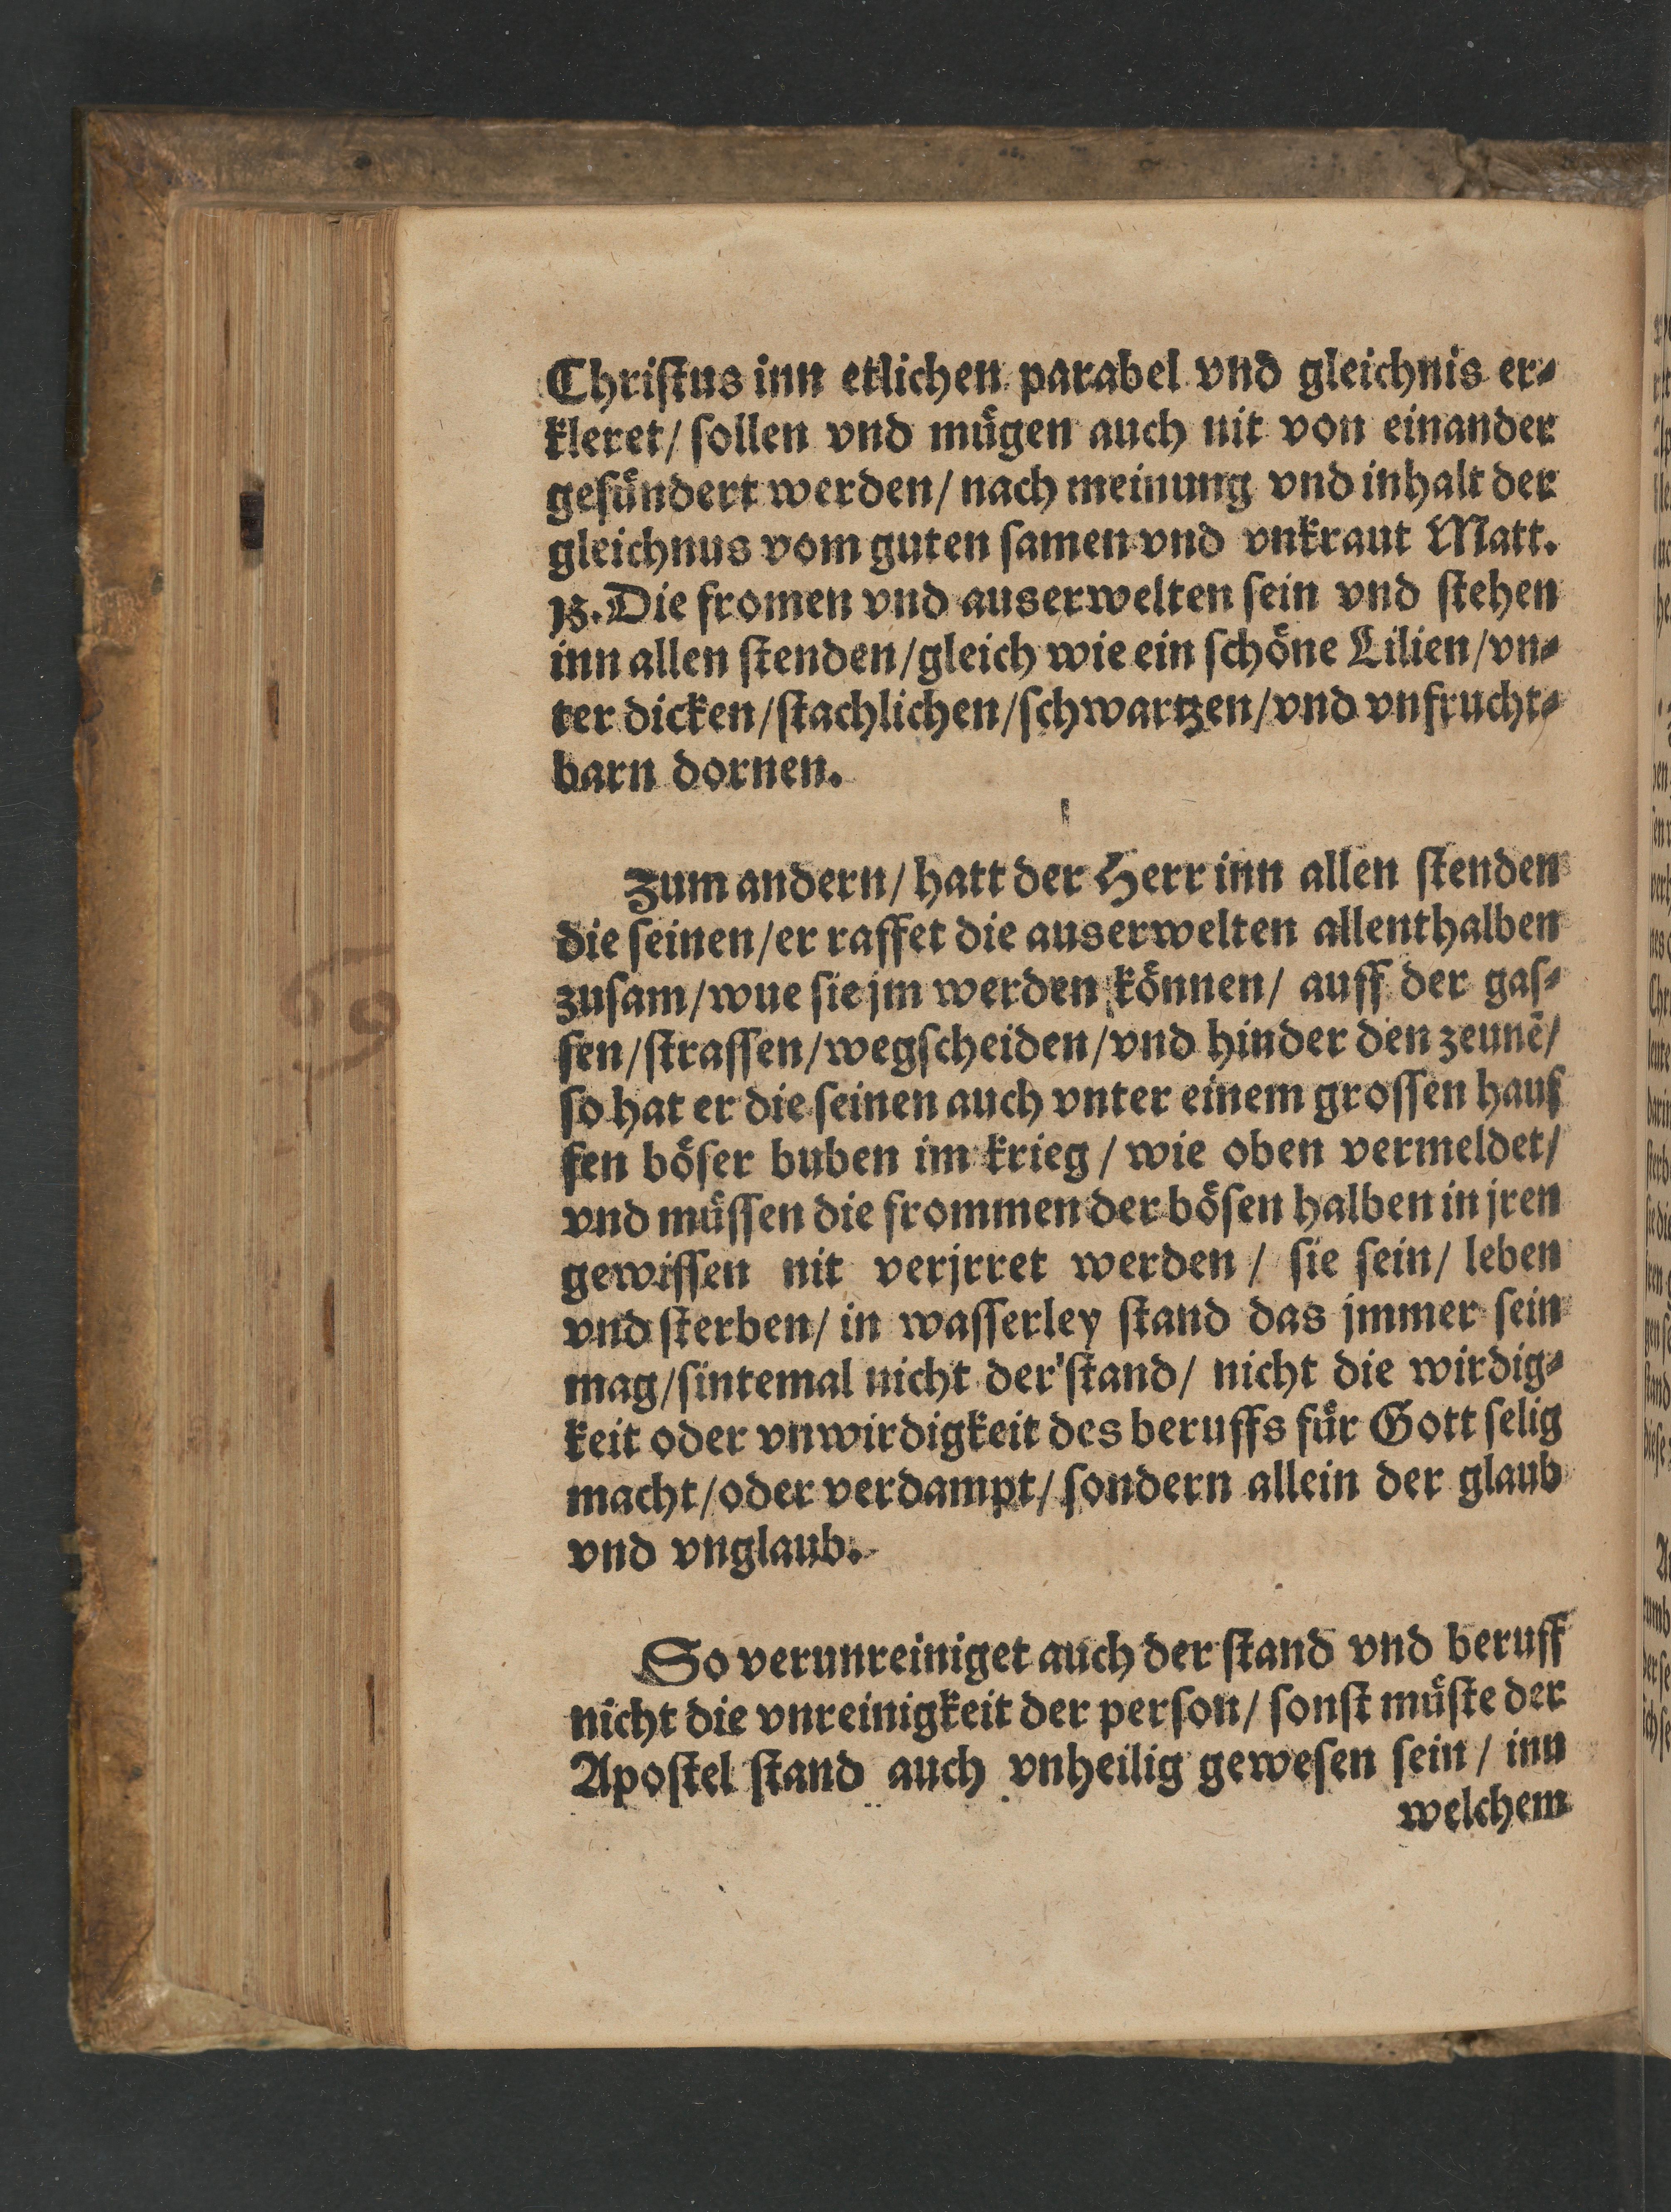 Chriſtus inn etlichen parabel vnd gleichnis er⸗
kleret/ ſollen vnd muͤgen auch nit von einander
geſuͤndert werden/ nach meinung vnd inhalt der
gleichnus vom guten ſamen vnd vnkraut Matt.
13. Die fromen vnd auserwelten ſein vnd ſtehen
inn allen ſtenden/gleich wie ein ſchoͤne Lilien/vn⸗
ter dicken/ſtachlichen/ſchwartzen/vnd vnfrucht⸗
barn dornen.
Zum andern/ hatt der Herr inn allen ſtenden
die ſeinen/er raffet die auserwelten allenthalben
zuſam/wue ſie jm werden koͤnnen/ auff der gaſ⸗
ſen/ſtraſſen/wegſcheiden/vnd hinder den zeunē/
ſo hat er die ſeinen auch vnter einem groſſen hauf
fen boͤſer buben im krieg / wie oben vermeldet/
vnd muͤſſen die frommen der boͤſen halben in jren
gewiſſen nit verjrret werden / ſie ſein/ leben
vnd ſterben/ in waſſerley ſtand das jmmer ſein
mag/ſintemal nicht der ſtand/ nicht die wirdig⸗
keit oder vnwirdigkeit des beruffs fuͤr Gott ſelig
macht/oder verdampt/ ſondern allein der glaub
vnd vnglaub.
So verunreiniget auch der ſtand vnd beruff
nicht die vnreinigkeit der perſon/ ſonſt muͤſte der
Apoſtel ſtand auch vnheilig geweſen ſein / inn
welchem